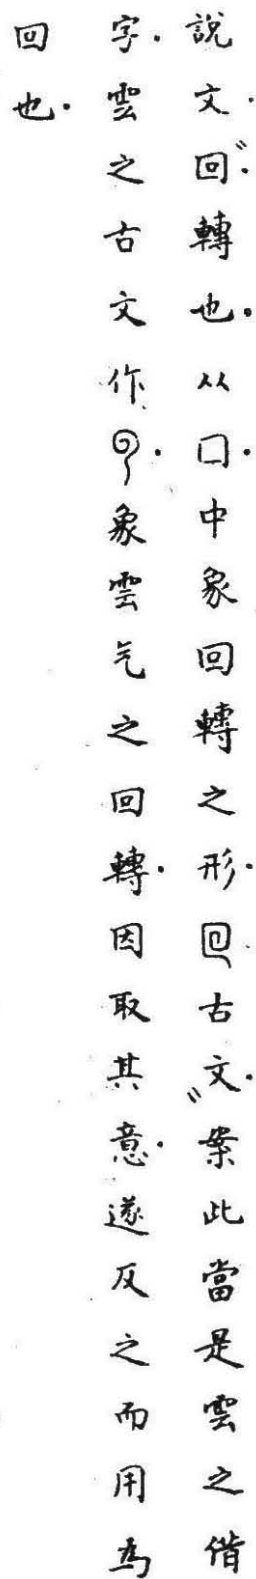 說文.〝回.轉也。从囗.中象回轉之形.囘古文.〞案此當是雲之偕
字.雲之古文作.象雲气之回轉.因取其意.遂反之而用為
回也.